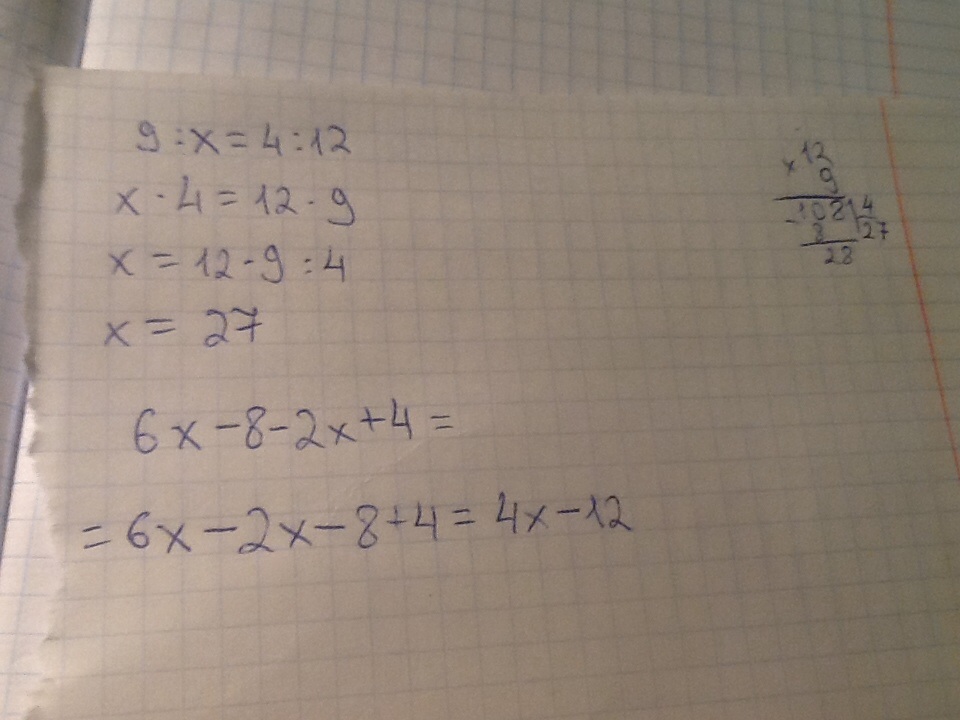 9 : x = 4 : 12
x · 4 = 12 · 9
x = 12 · 9 : 4
x = 27
6x - 8 - 2x + 4 =
= 6x - 2x - 8 + 4 = 4x - 12
x 12
9
- 108 | 4
8 27
28